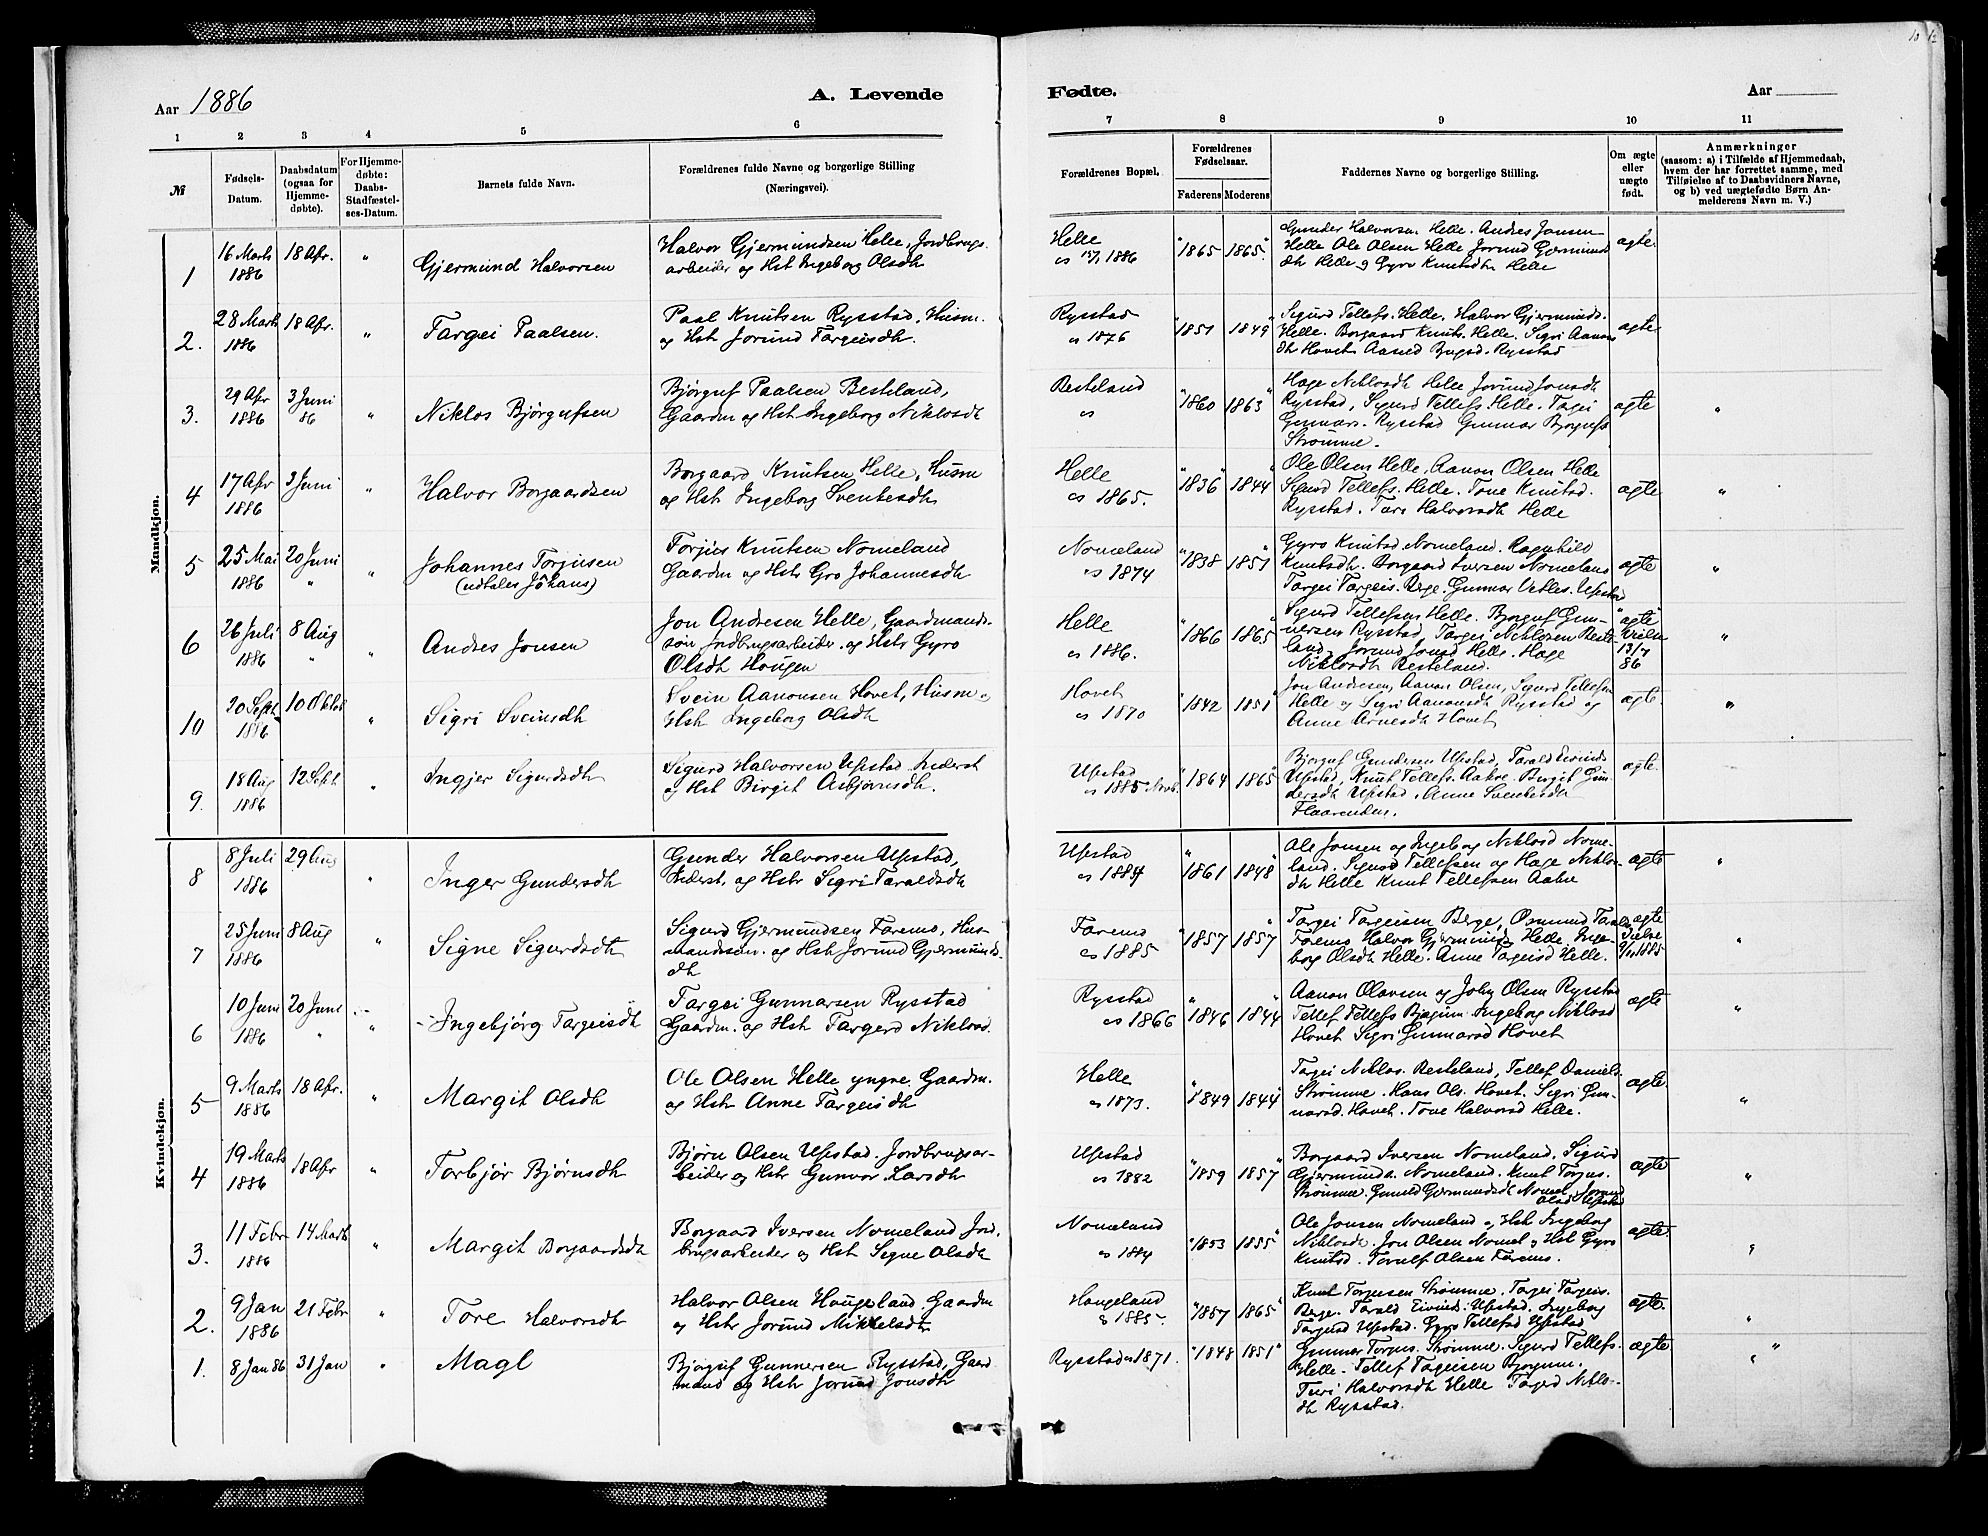 10 12
Aar 1886
A. Levende
Fødte.
Aar
1 2 3 4 5 6 7 8 9 10 11
№
Fødsels-Datum.
Daabsdatum (ogsaa for Hjemme-døbte).
For Hjemme-døbte: Daabs-Stadfæstel-ses-Datum.
Barnets fulde Navn.
Forældrenes fulde Navne og borgerlige Stilling (Næringsvei).
Forældrenes Bopæl.
Forældrenes Fødselsaar.
Faderens Moderens
Faddernes Navne og borgerlige Stilling.
Om ægte eller uægte født.
Anmærkninger
(saasom: a) i Tilfælde af Hjemmedaab, hvem der har forrettet samme, med Tilføielse af to Daabsvidners Navne, og b) ved uægtefødte Børn An-melderens Navn m. V.)
Mandkjøn.
1 16 Marts 1886 18 Apr. " Gjermund Halvorsen
Halvor Gjermundsen Helle, Jordbrugs-
arbeider og Hst Ingeborg Olsdh
Helle 1886 1865 1865
Gunder Halvorsn. Helle. Andres Jonsen
Helle Ole Olsen Helle Jorund Gjermunds
dh Helle og Gyro Knutsdh Helle
ægte.
2. 28 Marts 1886 18 Apr. " Targei Paalsen.
Paal Knutsen Rysstad, Husm.
og Hst Jorund Targeisdh.
Rysstad 1876 1851 1849
Sigurd Tellefs. Helle. Halvor Gjermunds.
Helle. Borgaard Knuts. Helle. Sigri Aanons
dh Hovet Rysstad
ægte
3. 29 Apr 1886 3 Juni 86 " Niklos Bjørgufsen
Bjørguf Paalsen Besteland,
Gaardm og Hst. Ingeborg Niklosdh
Besteland 1860 1863
Hæge Niklosdh Helle Jorund Jonsdh
Rysstad, Sigurd Tellefs. Helle. Targei
Gunnars. Rysstad Gunnar Bjorgufs
Strømme.
ægte "
4 17 Apr 1886 3 Juni " Halvor Borgaardsen
Borgaard Knutsen Helle, Husm
og Hst Ingeborg Svenkesdh
Helle 1865. 1836 1844
Ole Olsen Helle, Aanon Olsen Helle
Sigurd Tellefs. Helle. Tone Knutsd.
Rysstad. Tore Halvorsdh Helle
ægte "
5 25 Mai 1886 20 Juni " " Johannes Torjusen
(udtales Jôhans)
Torjus Knutsen Nomeland
Gaardm og Hst Gro Johannesdh
Nomeland 1874 1838 1851
Gyro Knutsd Nomeland. Ragnhild
Knutsdh. Borgaard Iversen Nomeland
Targei Targeis. Berge. Gunnar Vetles. Upstad
ægte "
6 26 Juli 1886 8 Aug " " Andres Jonsen
Jon Andresen Helle, Gaardmands-
søn Jordbrugsarbeider. og Hst Gyro
Olsdh Hougen
Helle 1886. 1866 1865
Sigurd Tellefsen Helle. Bjorguf Gun-
nersen Rysstad, Targei Niklosen Beste-
land, Jorund Jonsd Helle. Hæge
Niklosdh Besteland.
"ægte" 13/7 86 "
10 20 Sept 1886 10 Oktob " Sigri Sveinsdh
Svein Aanonsen Hovet, Husm og
Hst Ingeborg Olsdh
Hovet 1870 1842 1851
Jon Andresen, Aanon Olsen, Sigurd Tellefsen
Helle og Sigri Aanonsdh Rysstad og
Anne Arnesdh Hovet
ægte. "
9. 18 Aug 1886 12 Sept. " Ingjer Sigurdsdh
Sigurd Halvorsen Upstad Inderst
og Hst Birgit Asbjørnsdh.
Upstad 1885 Novb. 1864 1865
Bjorguf Gundersen Upstad, Tarald Eivinds
Upstad, Knut Tellefs. Aakre. Birgit Gun-
dersdh Upstad. Anne Svenkesdh
Flaarenden.
ægte.
Kvindekjøn.
8 8 Juli 1886 29 Aug " Inger Gundersdh
Gunder Halvorsen Upstad,
Inderst. og Hst Sigri Taraldsdh
Upstad 1884 1861 1848
Ole Jonsen og Ingeborg Niklosd Nome-
land. Sigurd Tellefsen og Hæge Niklos-
dh Helle Knut Tellefsen Aakre
ægte "
7 25 Juni 1886 8 Aug " Signe Sigurdsdh
Sigurd Gjermundsen Faremo, Hus-
mandssøn. og Hst Jorund Gjermunds-
dh
Faremo 1885 1857 1857
Targei Targeisen Berge, Osmund Taralds
Faremo Halvor Gjermunds Helle. Inge-
borg Olsdh Helle. Anne Targeisd Helle.
ægte 1885 "
6 10 Juni 1886 20 Juni " " Ingebjørg Targeisdh
Targei Gunnarsen Rysstad
Gaardm. og Hst Targerd Niklosd.
Rysstad 1866 1846 1844
Aanon Olavsen og John Olsen Rysstad
Tellef Tellefs Bjøgum Ingeborg Niklosd
Hovet Sigri Gunnarsd Hovet
ægte "
5 9 Marts 1886 18 Apr. " Margit Olsdh
Ole Olsen Helle yngre. Gaardm.
og Hst Anne Targeisdh
Helle 1873. 1849 1844
Targei Niklos. Besteland, Tellef Daniels
Strømme. Hans Ols. Hovet. Sigri Gun-
narsd. Hovet. Tove Halvorsd Helle.
ægte. "
4 19 Marts 1886 18 Apr " Torbjør Bjørnsdh
Bjørn Olsen Upstad. Jordbrugsar-
beider og Hst Gunvor Larsdh
Upstad 1882 1859 1857
Borgaard Iversen Nomeland, Sigurd
Gjermunds. Nomeland. Knut Torjus.
Strømme. Gunild Gjermundsdh Nomel. Jorund
Olsd Upstad
ægte "
3. 11 Febr 1886 14 Marts " Margit Borgaardsdh
Borgaard Iversen Nomeland Jord-
brugsarbeider og Hst Signe Olsdh
Nomeland 1884 1853 1855
Ole Jonsen Nomeland og Hst Ingeborg
Niklosdh. Jon Olsen Nomel og Hst Gyro
Knutsd. Tornlf Olsen Faremo.
ægte. "
2. 9 Jan 1886 21 Febr " Tore Halvorsdh
Halvor Olsen Hougeland. Gaardm
og Hst Jorund Mikkelsdh
Hougeland 1885. 1857 1865
Knut Torjusen Strømme. Targei Targeis.
Berge. Tarald Eivinds. Upstad. Ingeborg
Upstad. Gyro Tellefsd Upstad
ægte. "
1. 8 Jan 86 31 Jan " Magl
Bjørguf Gunnersen Rysstad, Gaard-
mand og Hst Jorund Jonsdh
Rysstad 1871. 1848 1851
Gunnar Torjus. Strømme. Sigurd Tellefs.
Helle. Tellef Targeisen Bjorgum.
Turi Halvorsdh Helle Targerd Niklos-
dh Rysstad.
ægte " "